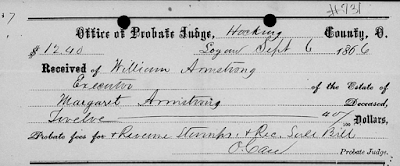 Office of Probate Judge, Hocking County, O.
$ 12.40 Logan Sept 6 1866
Received of William Armstrong
Executor of the Estate of
Margaret Armstrong Deceased,
Twelve 40/ Dollars,
Probate fees for & Revenue Stamps & Rec. Sale Bill
O. Case
Probate Judge.